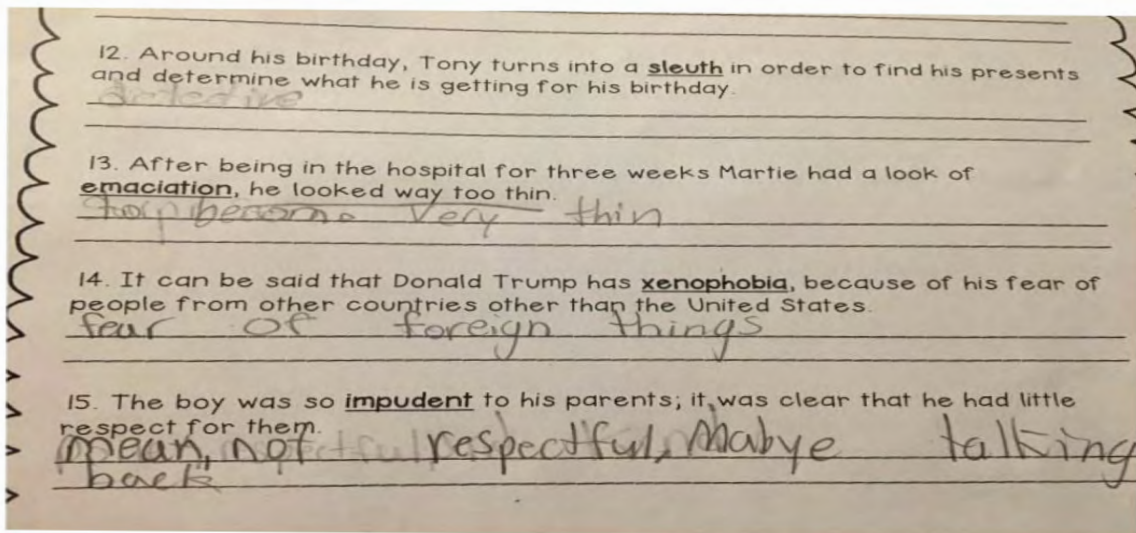 12. Around his birthday, Tony turns into a sleuth in order to find his presents
and determine what he is getting for his birthday.
detective
13. After being in the hospital for three weeks Martie had a look of
emaciation, he looked way too thin.
become very thin
14. It can be said that Donald Trump has xenophobia, because of his fear of
people from other countries other than the United States.
fear of foreign things
15. The boy was so impudent to his parents; it was clear that he had little
respect for them.
mean, not respectful, Mabye talking
back